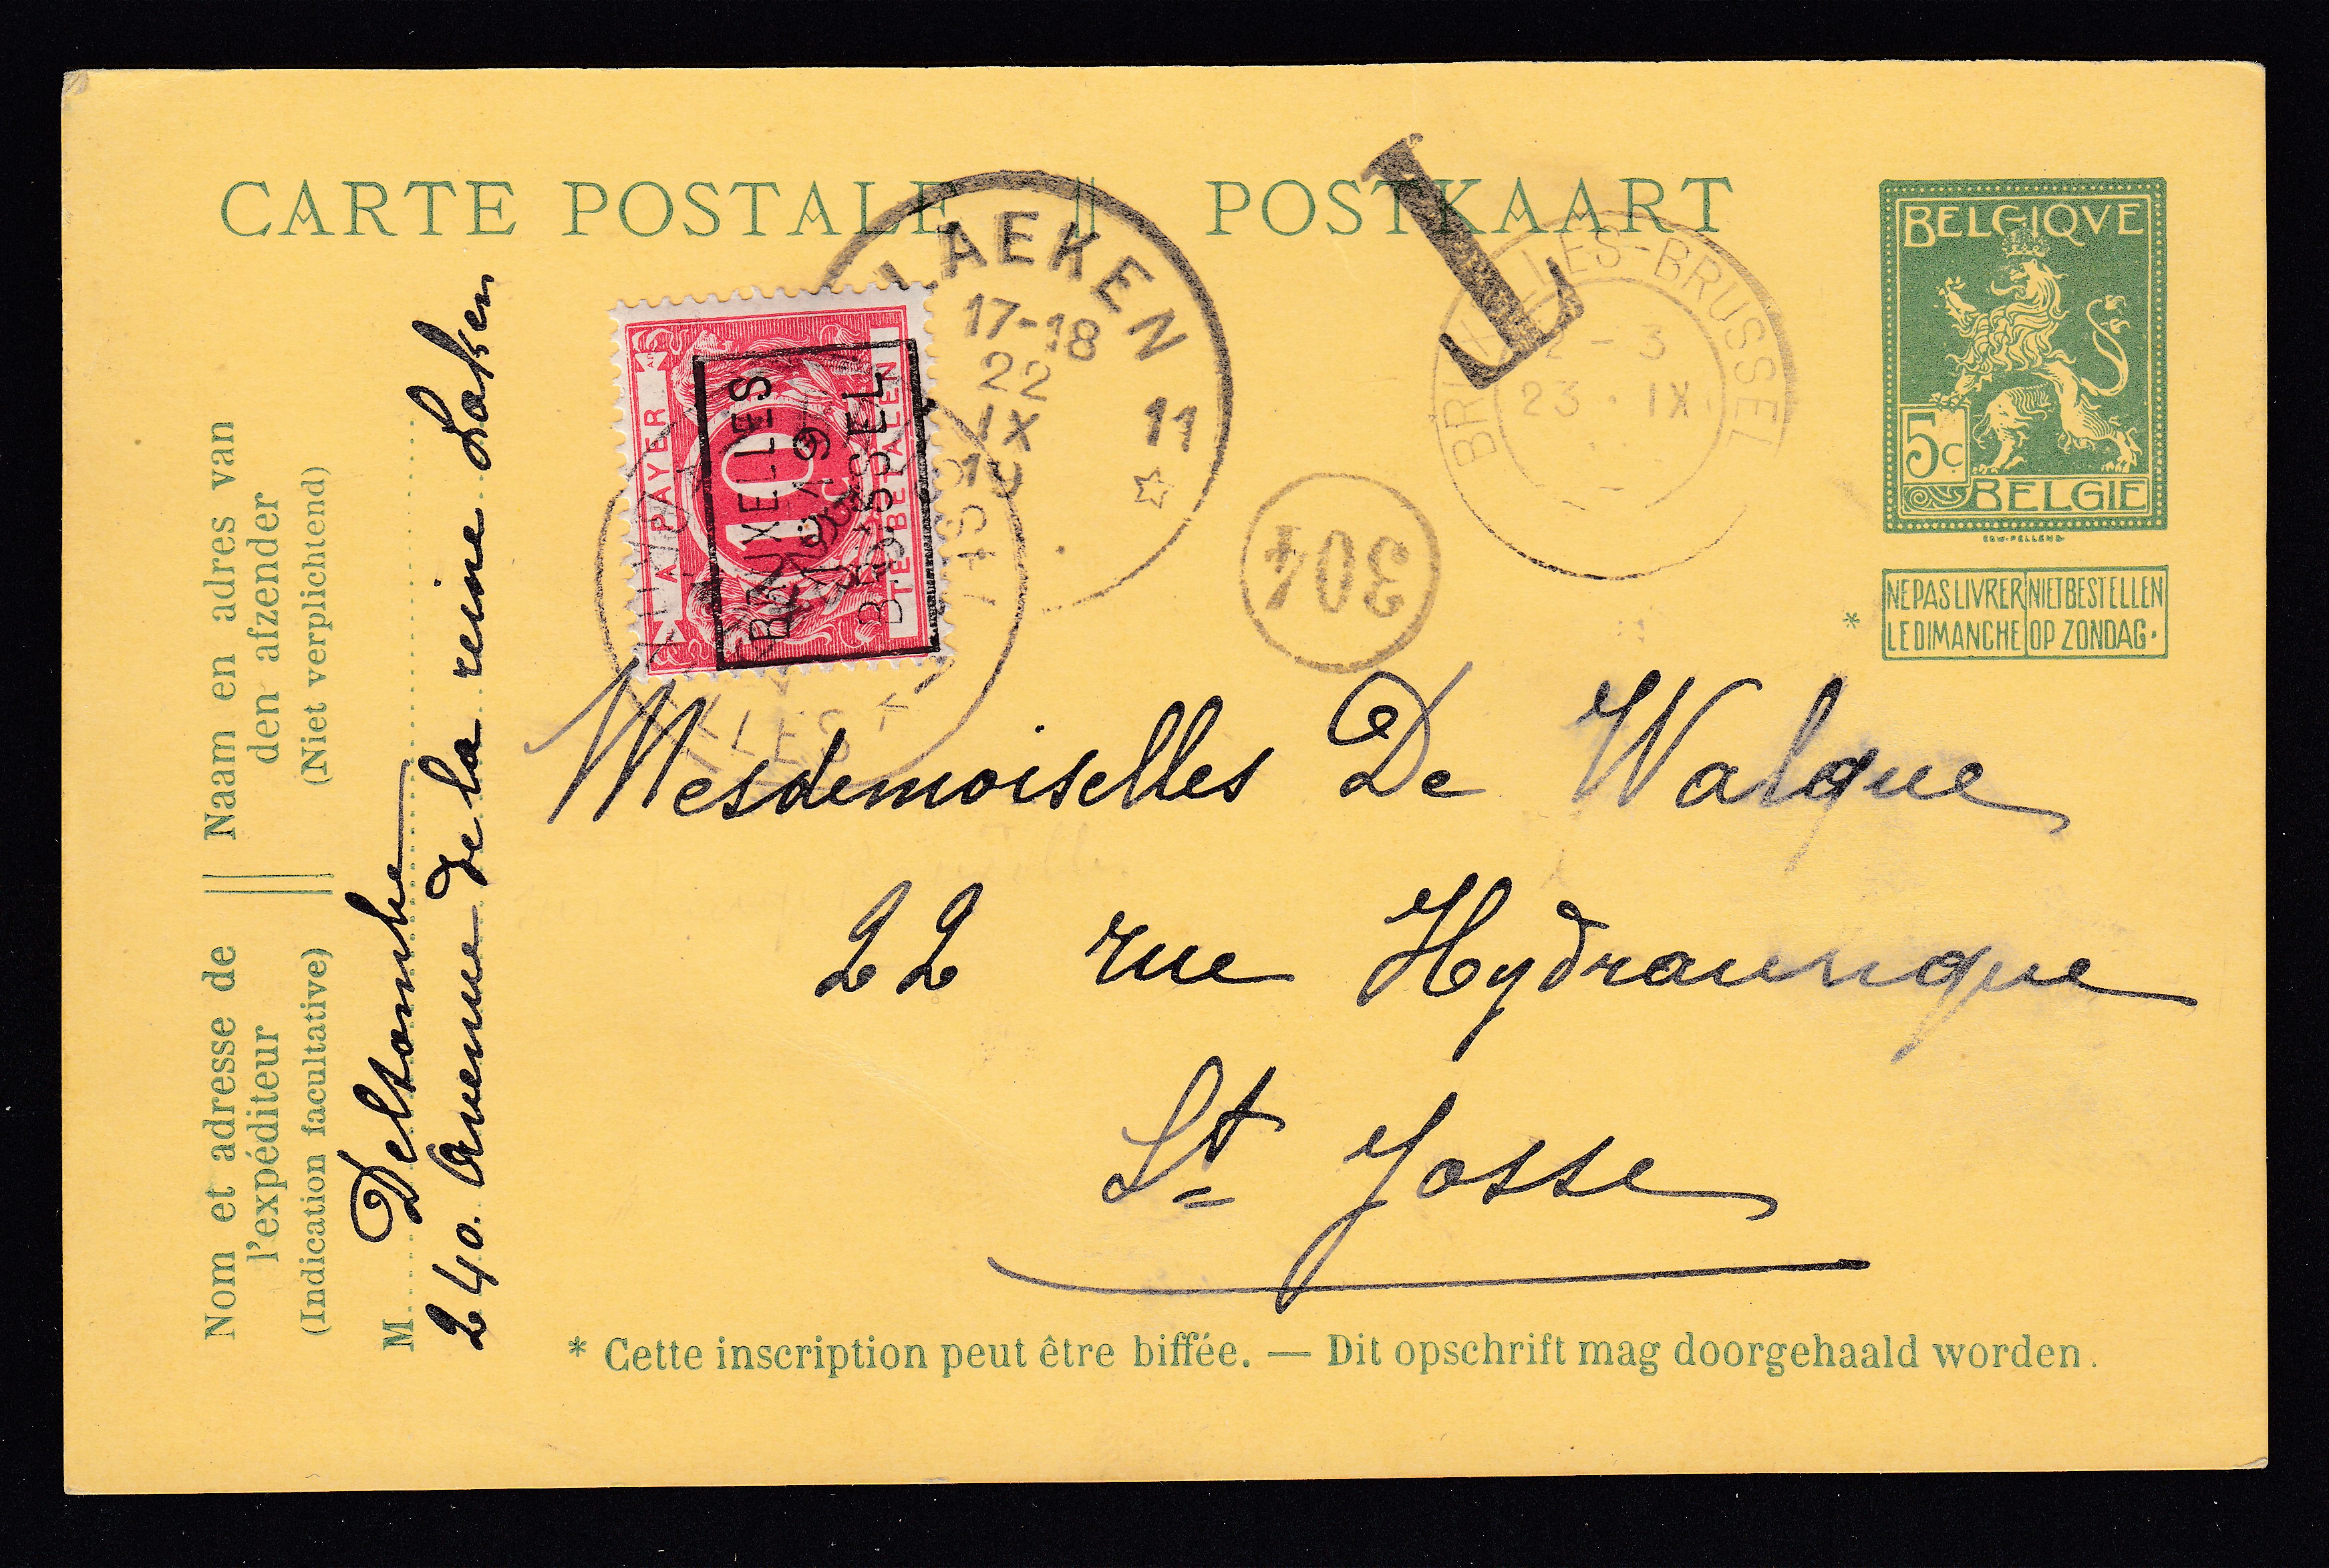 CARTE POSTALE || POSTKAART
BELGIQVE
5c
BELGIE
NE PAS LIVRER LE DIMANCHE
NIET BESTELLEN OP ZONDAG.
*
LAEKEN
17-18
22
IX
11
T
BRUXELLES-BRUSSEL
2-3
23 · IX
304
A PAYER
10c
TE BETALEN
BRUXELLES
BRUSSEL
Mesdemoiselles De Walque
22 rue Hydraunique
St Josse
Nom et adresse de l'expéditeur
(Indication facultative)
Naam en adres van den afzender
(Niet verplichtend)
M. Deltombe
240. Avenue de la reine Laken
* Cette inscription peut être biffée. — Dit opschrift mag doorgehaald worden.